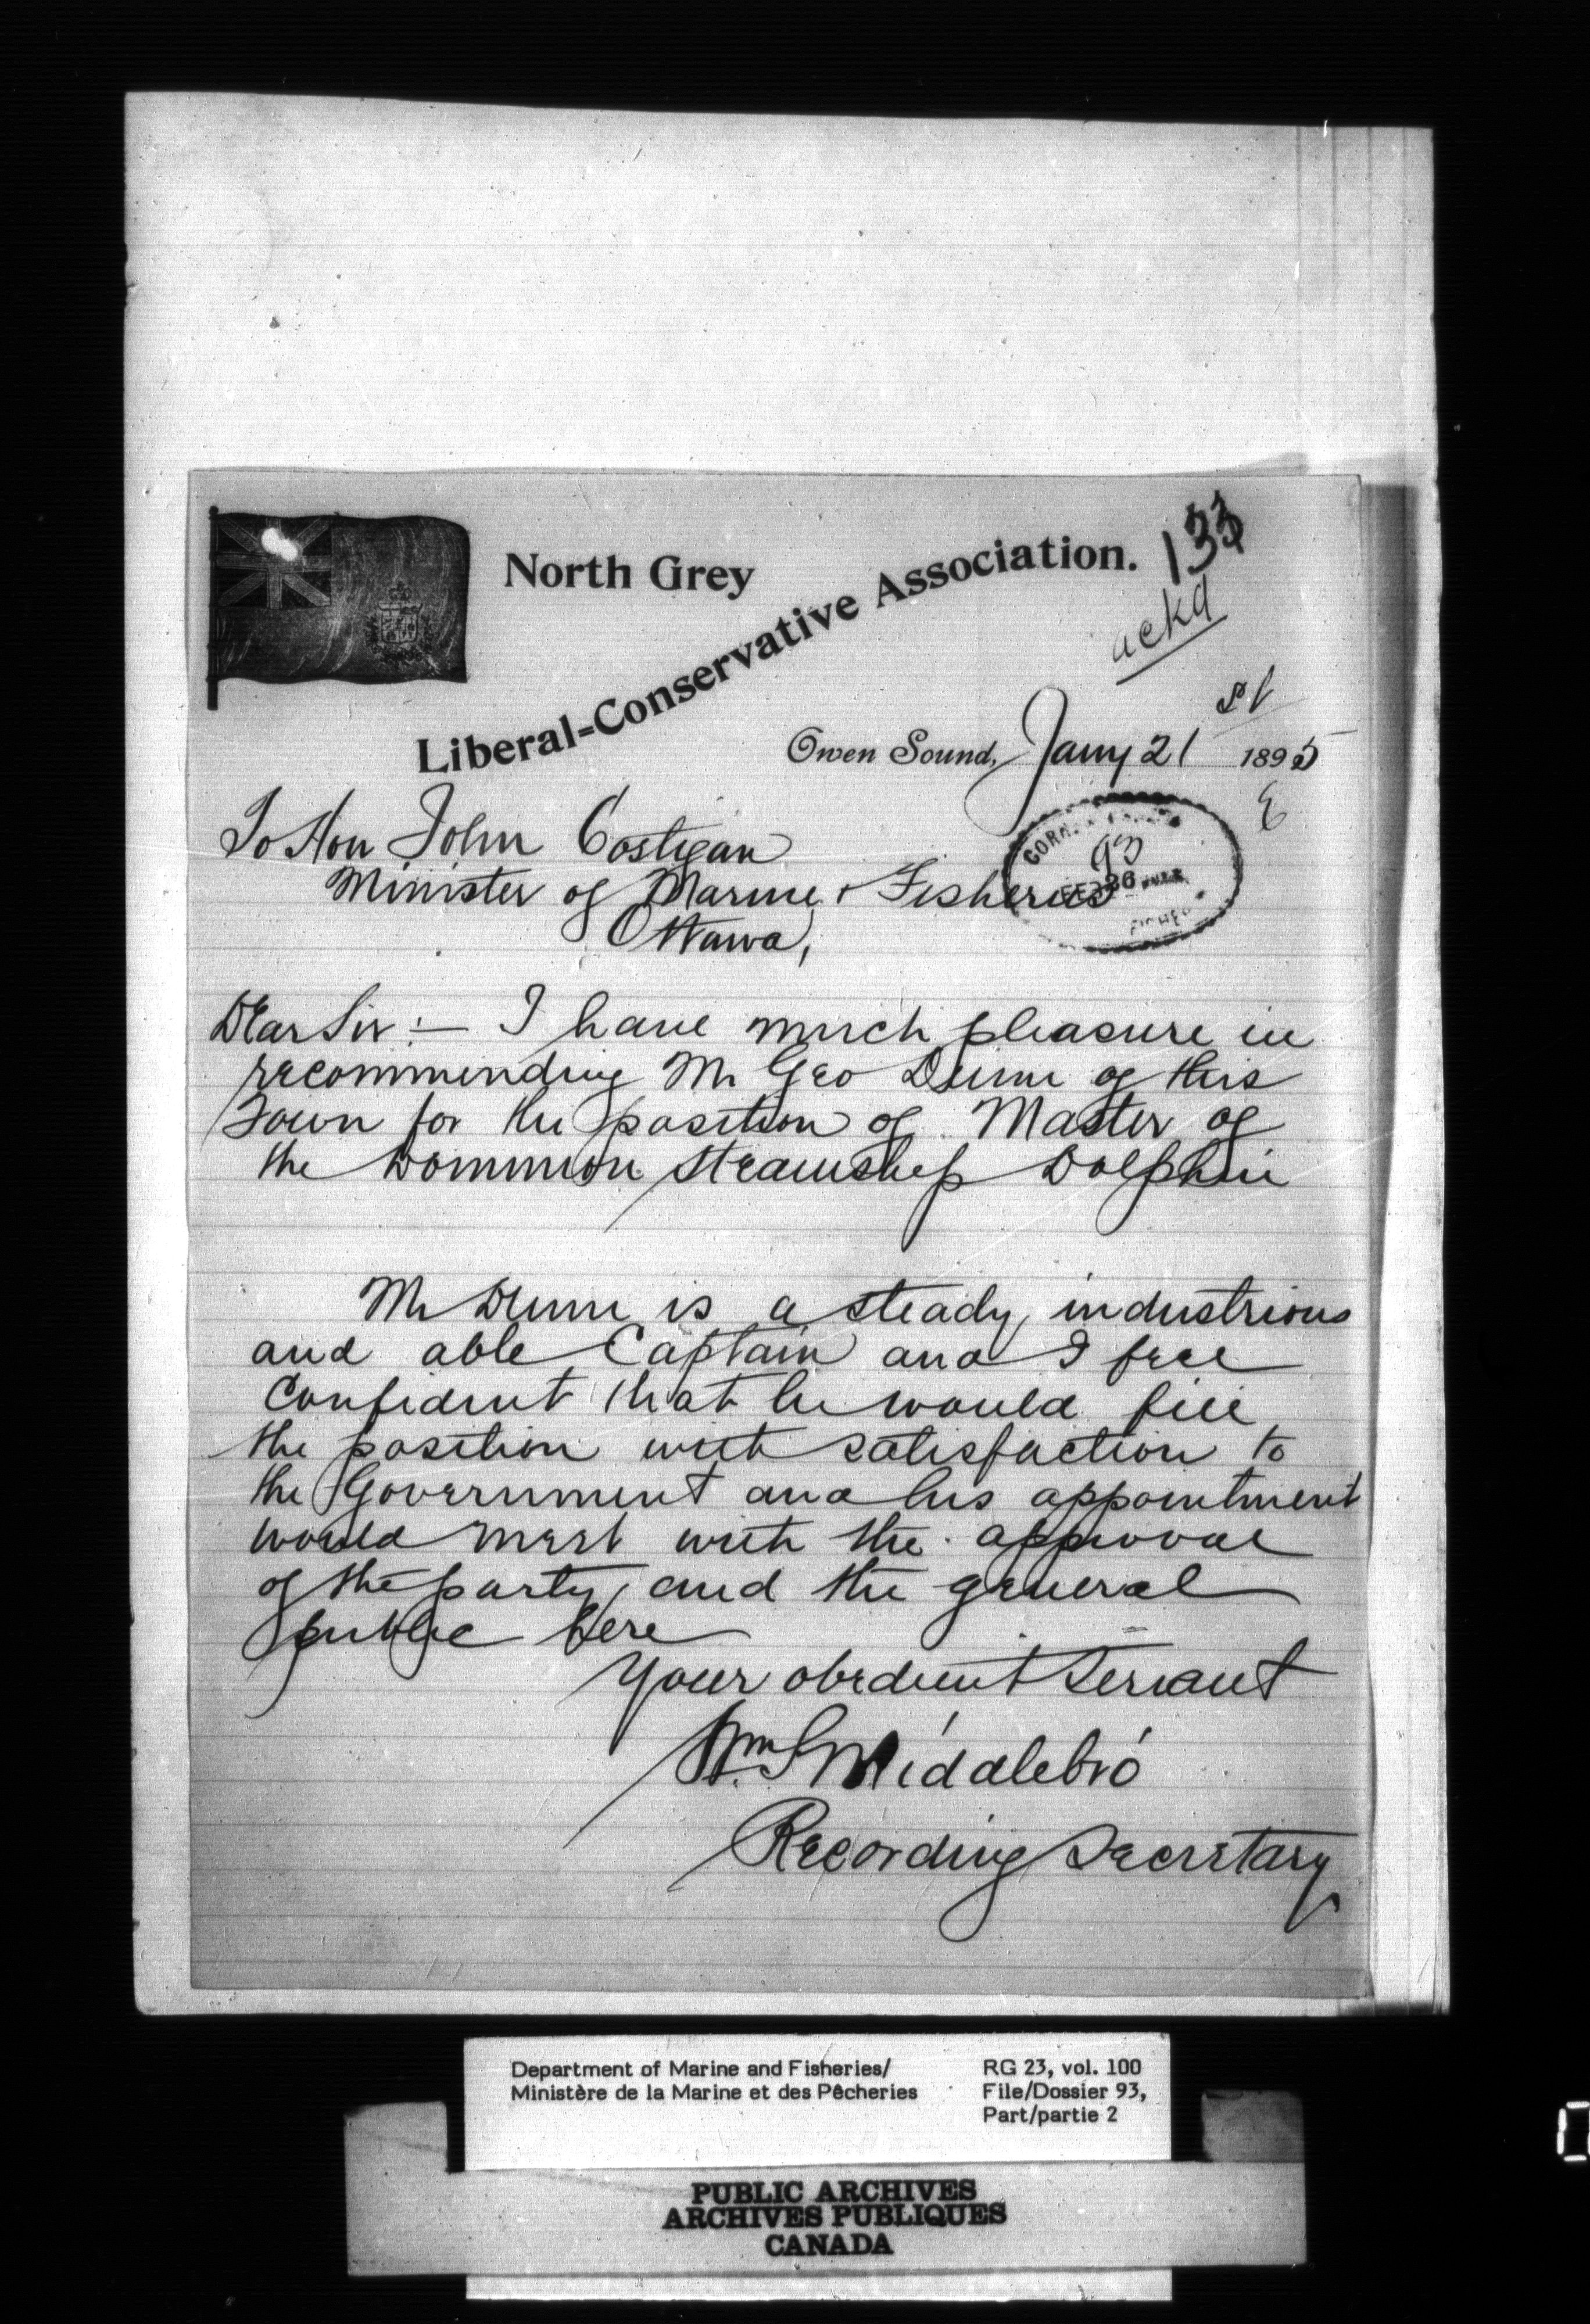 133
North Grey
Liberal-Conservative Association.
ackd
Owen Sound, Jany 21st 1895
To Hon John Costigan
Minister of Marine & Fisheries
Ottawa,
93
Dear Sir :- I have much pleasure in
recommending Mr Geo Dunn of this
Town for the position of Master of
the Dominion Steamship Dolphin
Mr Dunn is a steady, industrious
and able Captain and I feel
confident that he would fill
the position with satisfaction to
the Government and his appointment
would meet with the approval
of the party and the general
public here
Your obedient Servant
Wm S Middlebro
Recording Secretary
Department of Marine and Fisheries/
Ministère de la Marine et des Pêcheries
RG 23, vol. 100
File/Dossier 93,
Part/partie 2
PUBLIC ARCHIVES
ARCHIVES PUBLIQUES
CANADA